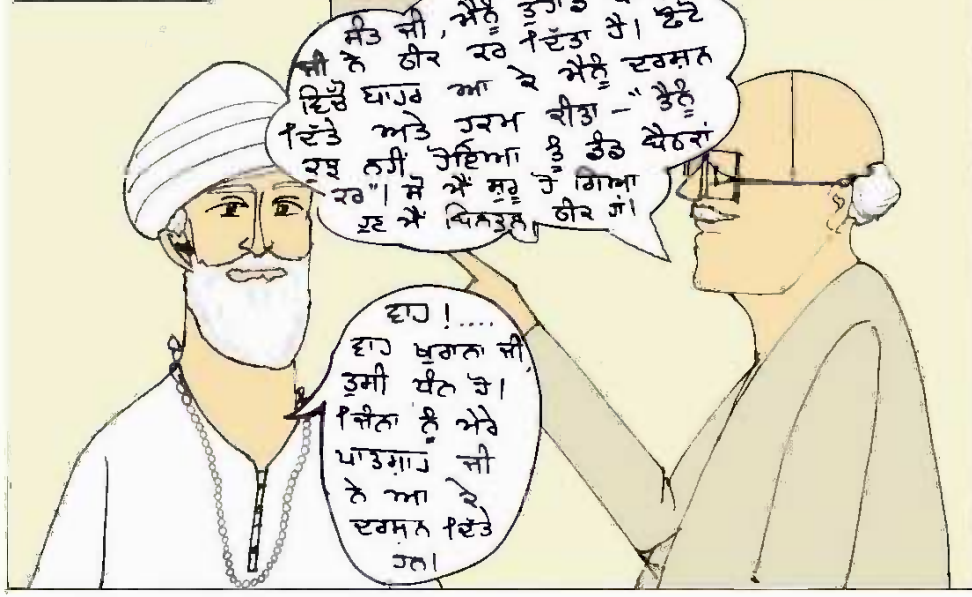 ਸੰਤ ਜੀ, ਮੈਨੂੰ ਤੁਹਾਡੇ
ਜੀ ਨੇ ਠੀਕ ਕਰ ਦਿੱਤਾ ਹੈ। ਫੋਟੋ
ਵਿਚੋਂ ਬਾਹਰ ਆ ਕੇ ਮੈਨੂੰ ਦਰਸ਼ਨ
ਦਿੱਤੇ ਅਤੇ ਹੁਕਮ ਕੀਤਾ – "ਤੈਨੂੰ
ਕੁਝ ਨਹੀਂ ਹੋਇਆ ਤੂੰ ਡੰਡ ਬੈਠਕਾਂ
ਕਰ"। ਸੋ ਮੈਂ ਸ਼ੁਰੂ ਹੋ ਗਿਆ
ਹੁਣ ਮੈਂ ਬਿਲਕੁਲ ਠੀਕ ਹਾਂ।
ਵਾਹ !....
ਵਾਹ ਖੁਰਾਨਾ ਜੀ,
ਤੁਸੀ ਧੰਨ ਹੋ।
ਜਿੰਨਾ ਨੂੰ ਮੇਰੇ
ਪਾਤਸ਼ਾਹ ਜੀ
ਨੇ ਆ ਕੇ
ਦਰਸ਼ਨ ਦਿੱਤੇ
ਹਨ।